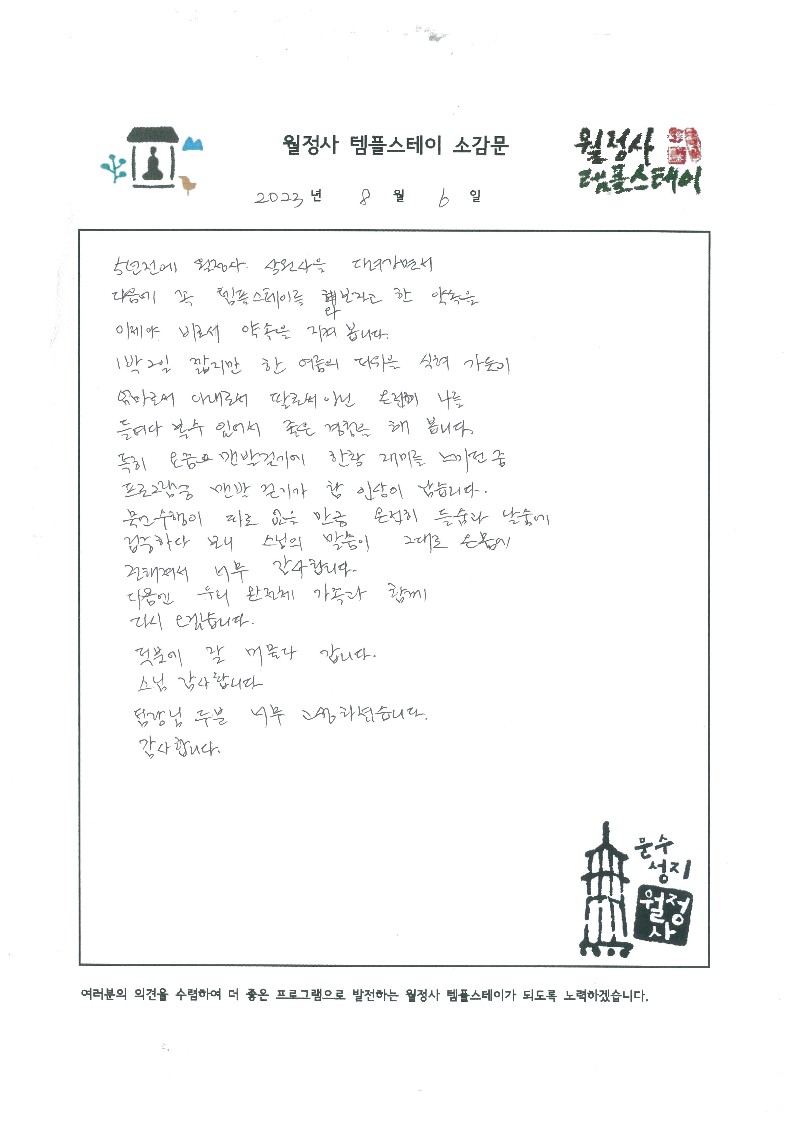 월정사 템플스테이 소감문
월정사
템플스테이
2023년 8월 6일
5년전에 월정사. 상원사를 다녀가면서
다음에 꼭 템플스테이를 해보자고 한 약속을
와
이제야 비로서 약속을 지켜 봅니다.
1박2일 짧지만 한 여름의 더위를 식혀 가듯이
엄마로서 아내로서 딸로써 아닌 온전히 나를
들여다 볼수 있어서 좋은 경험을 해 봅니다.
특히 요즘 맨발걷기에 한창 재미를 느끼던 중
프로그램중 맨발 걷기가 참 인상이 남습니다.
묵언수행이 따로 없을 만큼 온전히 들숨과 날숨에
집중하다 보니 스님의 말씀이 그대로 온몸에
전해져서 너무 감사합니다.
다음엔 우리 완전체 가족과 함께
다시 오겠습니다.
덕분에 잘 머물다 갑니다.
스님 감사합니다
팀장님 두분 너무 고생하셨습니다.
감사합니다.
문수
성지
월정
사
여러분의 의견을 수렴하여 더 좋은 프로그램으로 발전하는 월정사 템플스테이가 되도록 노력하겠습니다.